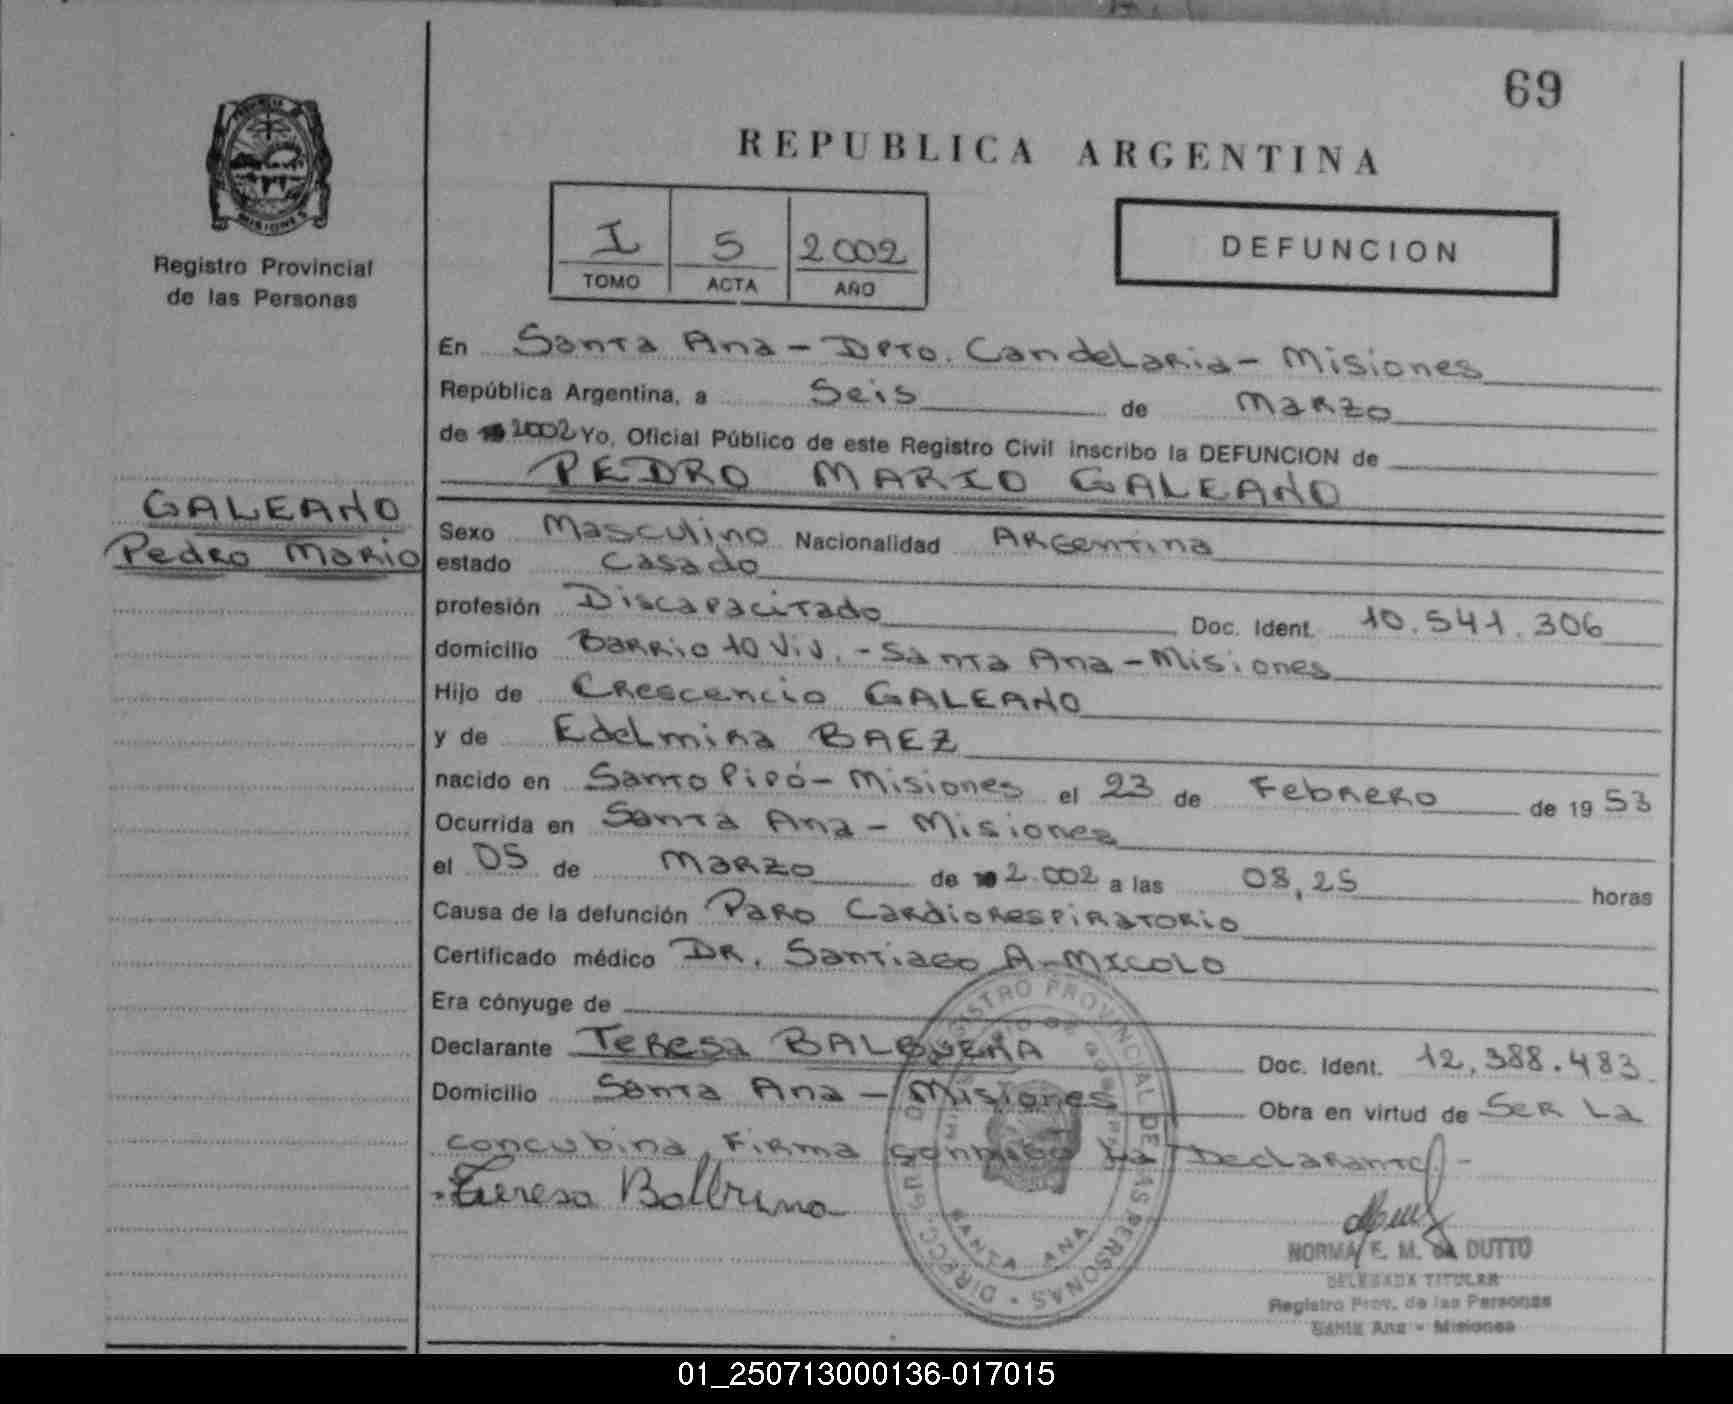 69
REPUBLICA ARGENTINA
MISIONES
Registro Provincial
de las Personas
I 5 2002
TOMO ACTA AÑO
DEFUNCION
En Santa Ana - Dpto. Candelaria - Misiones
República Argentina, a Seis de Marzo
de 2002 Yo, Oficial Público de este Registro Civil inscribo la DEFUNCION de
PEDRO MARIO GALEANO
GALEANO
Pedro Mario
Sexo Masculino Nacionalidad Argentina
estado Casado
profesión Discapacitado Doc. Ident. 10.541.306
domicilio Barrio 10 Viv. - Santa Ana - Misiones
Hijo de Crescencio GALEANO
y de Edelmira BAEZ
nacido en Santo Pipó - Misiones el 23 de Febrero de 1953
Ocurrida en Santa Ana - Misiones
el 05 de Marzo de 2.002 a las 08,25 horas
Causa de la defunción Paro Cardiorespiratorio
Certificado médico DR. Santiago A. MICOLO
Era cónyuge de
Declarante Teresa BALBUENA Doc. Ident. 12.388.483
Domicilio Santa Ana - Misiones Obra en virtud de Ser La
concubina, Firma conmigo La Declarante. -
Teresa Balbuena
NORMA E. M. de DUTTO
DELEGADA TITULAR
Registro Prov. de las Personas
Santa Ana - Misiones
REGISTRO PROVINCIAL DE LAS PERSONAS
SANTA ANA
01_250713000136-017015